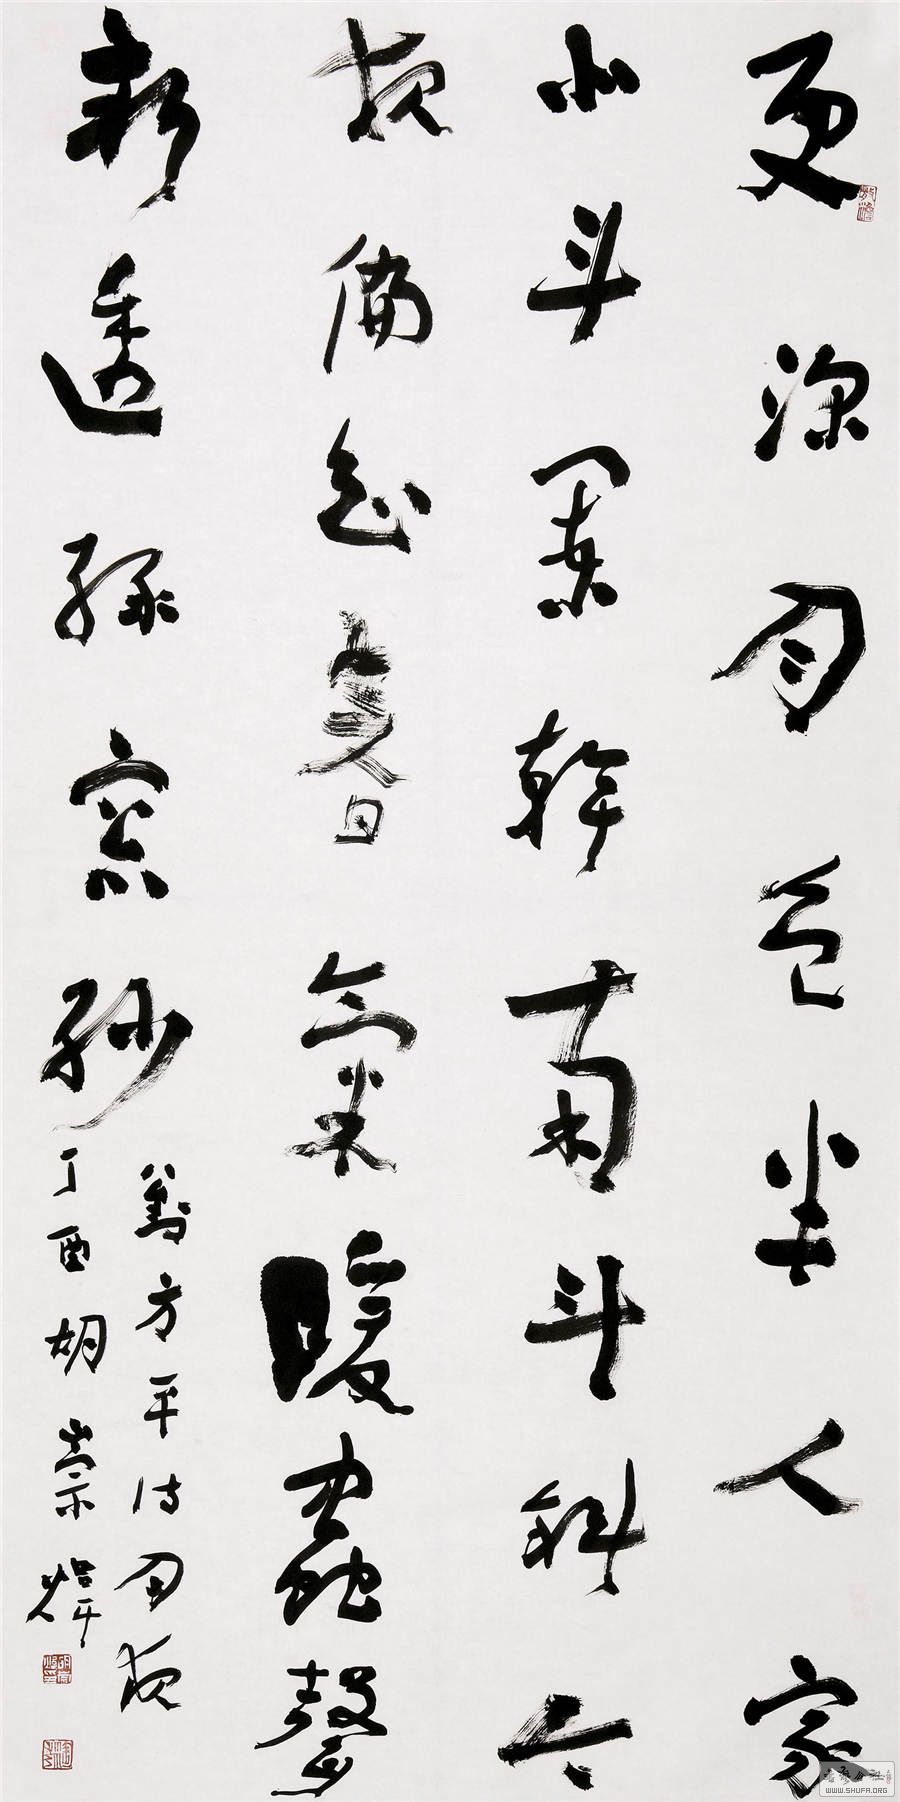 更深月色半人家
北斗闌幹南斗斜今
夜偏知春氣暖蟲聲
新透綠窗紗
劉方平诗月夜
丁酉胡崇煒
WWW.SHUFA.ORG